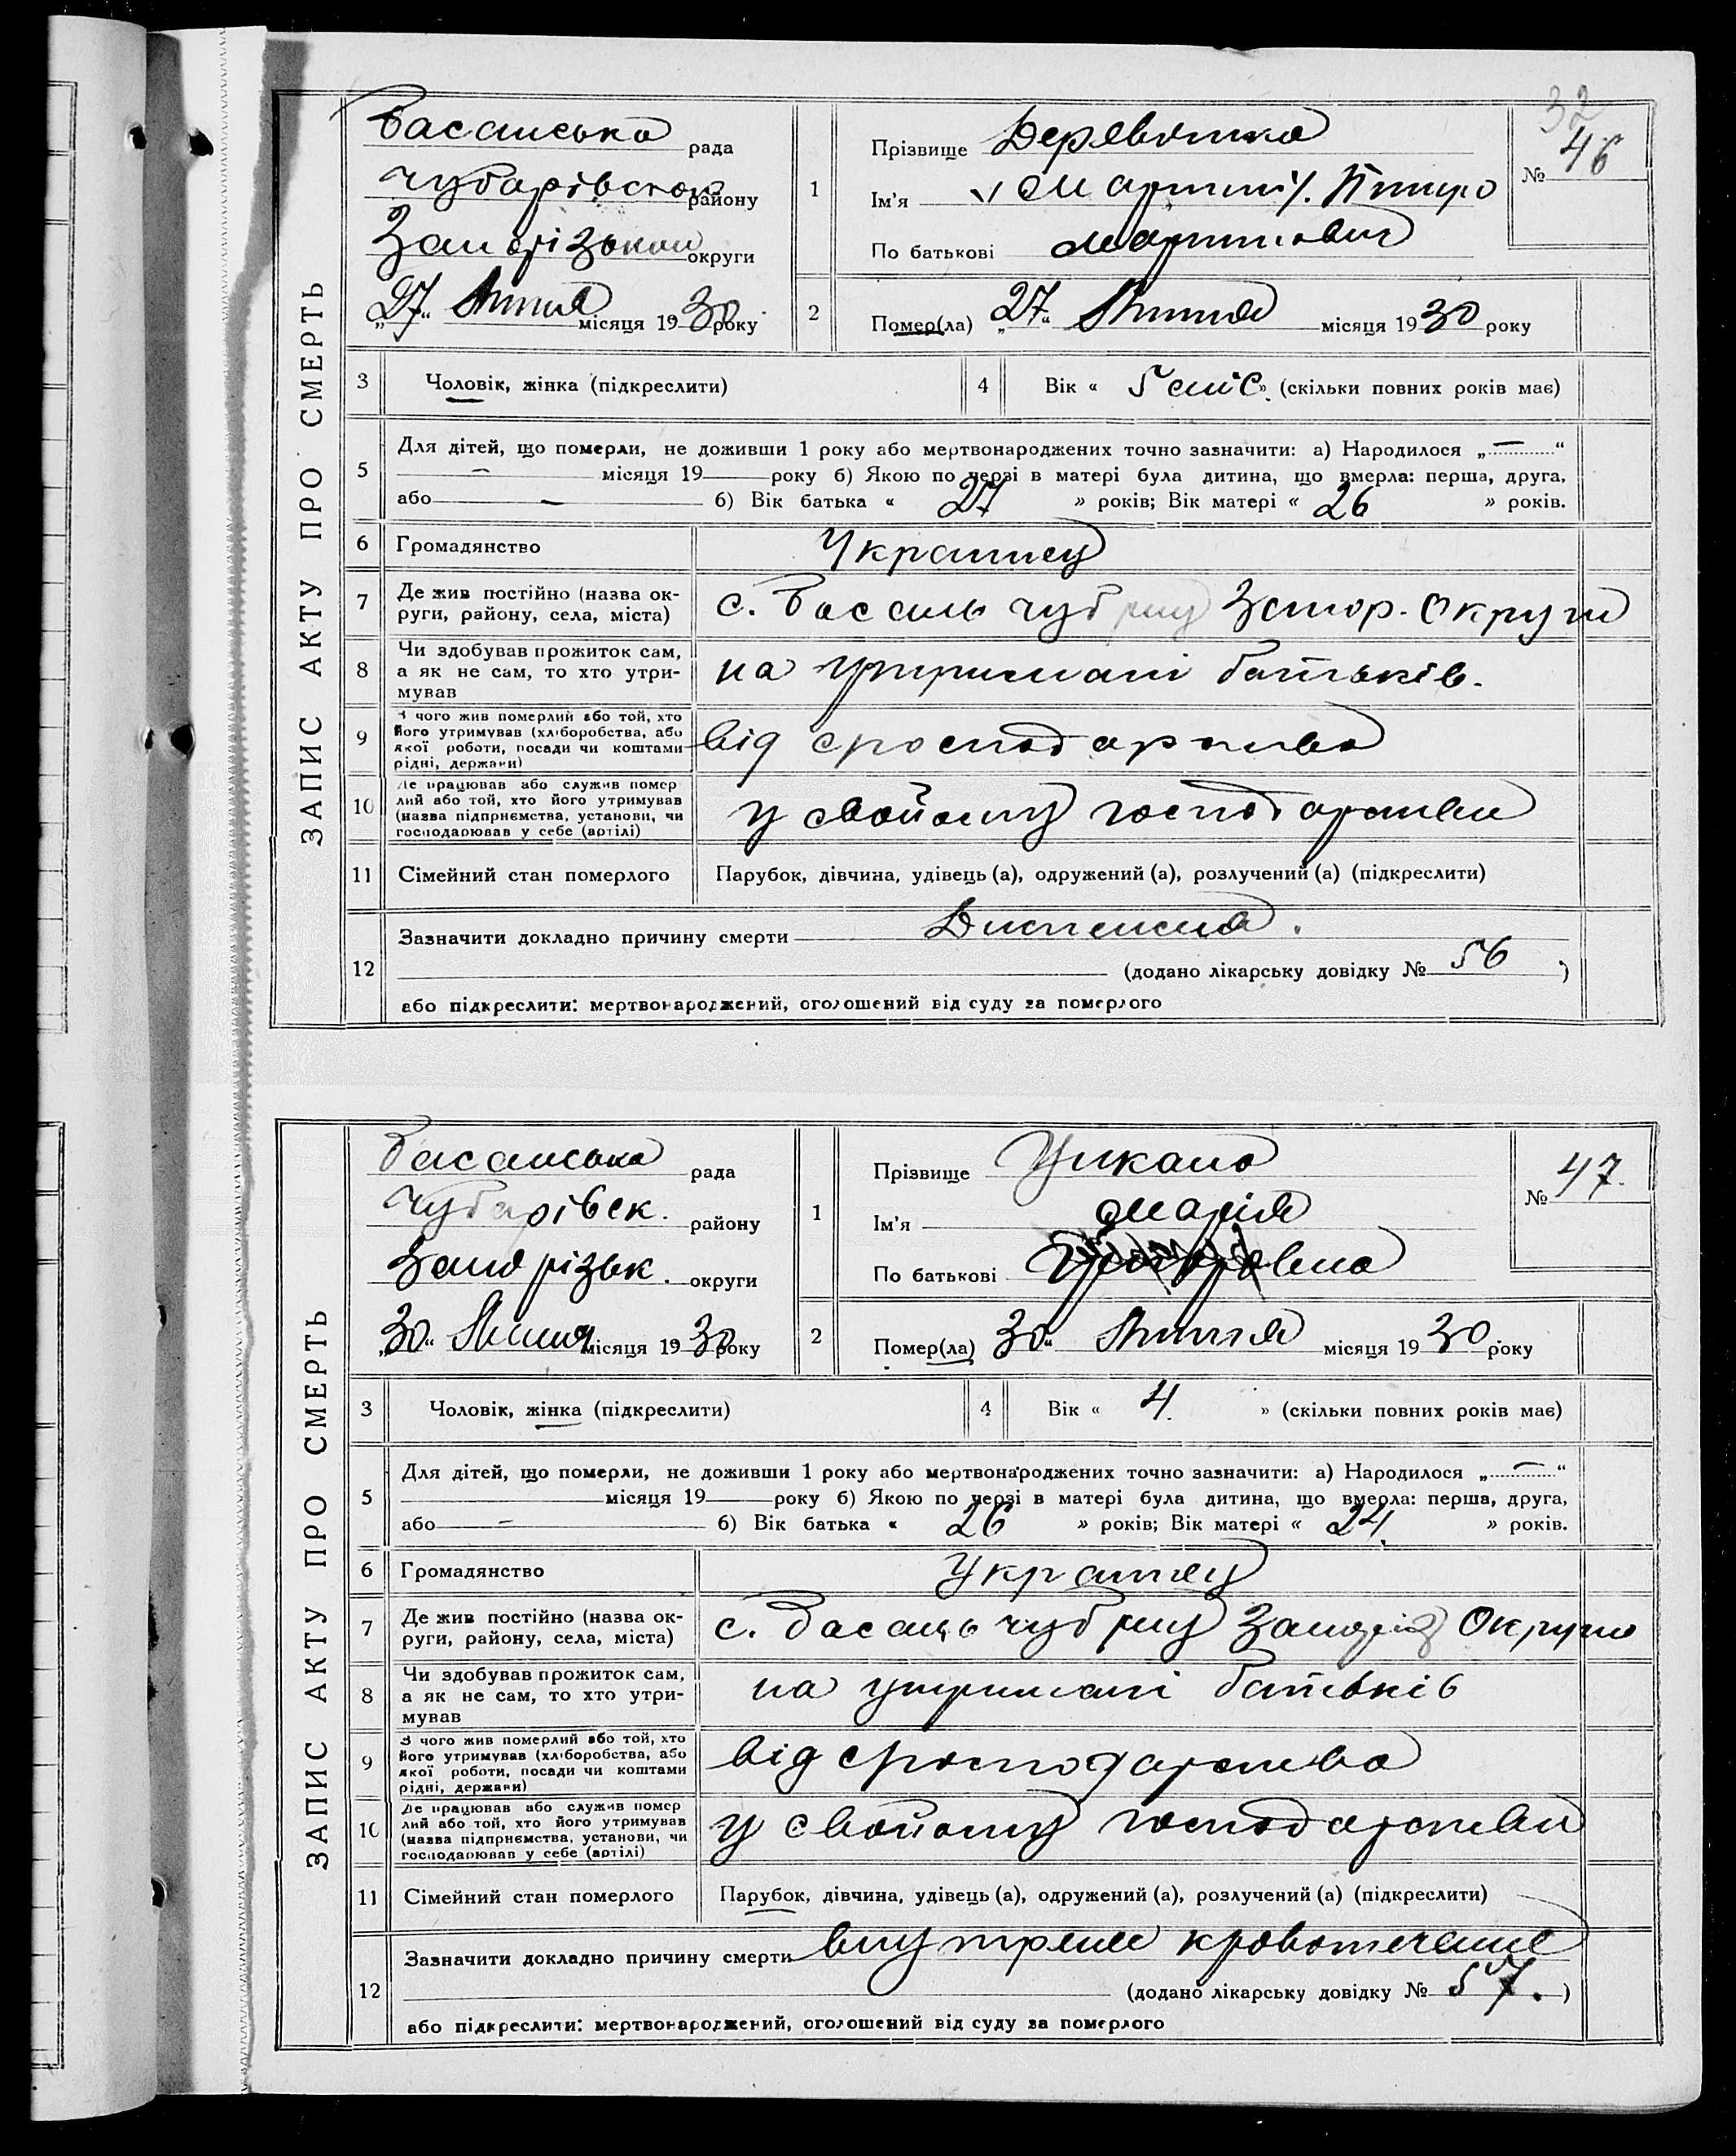 32
ЗАПИС АКТУ ПРО СМЕРТЬ
Басанська рада
Чубарівськ району
Запорізької округи
„27“ Липня місяця 1930 року
1
Прізвище Деревянко
Ім'я
По батькові Мартинович
№ 46
2
Помер(ла) „27“ Липня місяця 1930 року
3 Чоловік, жінка (підкреслити)
4 Вік « 5 » (скільки повних років має)
5 Для дітей, що померли, не доживши 1 року або мертвонароджених точно зазначити: а) Народилося „—“
— місяця 19 року б) Якою по черзі в матері була дитина, що вмерла: перша, друга,
або — б) Вік батька « 27 » років; Вік матері « 26 » років.
6 Громадянство Украинец
7 Де жив постійно (назва ок-
руги, району, села, міста) с. Басань Чуб рну Запор. Округи
8 Чи здобував прожиток сам,
а як не сам, то хто утри-
мував на утримані батьків.
9 З чого жив померлий або той, хто
його утримував (хліборобства, або
якої роботи, посади чи коштами
рідні, держави) від сгосподарства
10 Де працював або служив помер
лий або той, хто його утримував
(назва підприємства, установи, чи
господарював у себе (артілі) у свойому господарстви
11 Сімейний стан померлого Парубок, дівчина, удівець (а), одружений (а), розлучений (а) (підкреслити)
12 Зазначити докладно причину смерти
(додано лікарську довідку № 56 )
або підкреслити: мертвонароджений, оголошений від суду за померлого
ЗАПИС АКТУ ПРО СМЕРТЬ
Басанська рада
Чубарівськ. району
Запорізьк. округи
„30“ Липня місяця 1930 року
1
Прізвище Цикало
Ім'я Марія
По батькові
№ 47.
2
Помер(ла) „30“ Липня місяця 1930 року
3 Чоловік, жінка (підкреслити)
4 Вік « 4 » (скільки повних років має)
5 Для дітей, що померли, не доживши 1 року або мертвонароджених точно зазначити: а) Народилося „—“
місяця 19 року б) Якою по черзі в матері була дитина, що вмерла: перша, друга,
або — б) Вік батька « 26 » років; Вік матері « 24 » років.
6 Громадянство Украинец
7 Де жив постійно (назва ок-
руги, району, села, міста) с. Басань Чуб рну Запоріз Округи
8 Чи здобував прожиток сам,
а як не сам, то хто утри-
мував на утримані батьків
9 З чого жив померлий або той, хто
його утримував (хліборобства, або
якої роботи, посади чи коштами
рідні, держави) від сгосподарства
10 Де працював або служив помер
лий або той, хто його утримував
(назва підприємства, установи, чи
господарював у себе (артілі) у свойому господарстви
11 Сімейний стан померлого Парубок, дівчина, удівець (а), одружений (а), розлучений (а) (підкреслити)
12 Зазначити докладно причину смерти внутрене кровотечение
(додано лікарську довідку № 57. )
або підкреслити: мертвонароджений, оголошений від суду за померлого